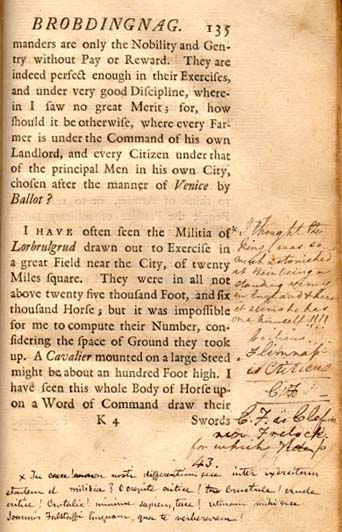 BROBDINGNAG. 135
manders are only the Nobility and Gen-
try without Pay or Reward. They are
indeed perfect enough in their Exercises,
and under very good Discipline, where-
in I saw no great Merit; for, how
should it be otherwise, where every Far-
mer is under the Command of his own
Landlord, and every Citizen under that
of the principal Men in his own City,
chosen after the manner of Venice by
Ballot?
I HAVE often seen the Militia of
Lorbrulgrud drawn out to Exercise in
a great Field near the City, of twenty
Miles square. They were in all not
above twenty five thousand Foot, and six
thousand Horse; but it was impossible
for me to compute their Number, con-
sidering the space of Ground they took
up. A Cavalier mounted on a large Steed
might be about an hundred Foot high. I
have seen this whole Body of Horse up-
on a Word of Command draw their
K 4 Swords
x I thought the
King was so
much astonished
at their being a
standing army
in England & here
it seems he has
one himself!!!!
Criticus.
Flimnap
is Criticus
C. F.
C. F. is
for which
43.
x In esse non nosti differentiam inter exercitum
et militia? O
critice! minime sapiens, utinam mihi
Joannis Falstaffi linguam, qua te verberarem.